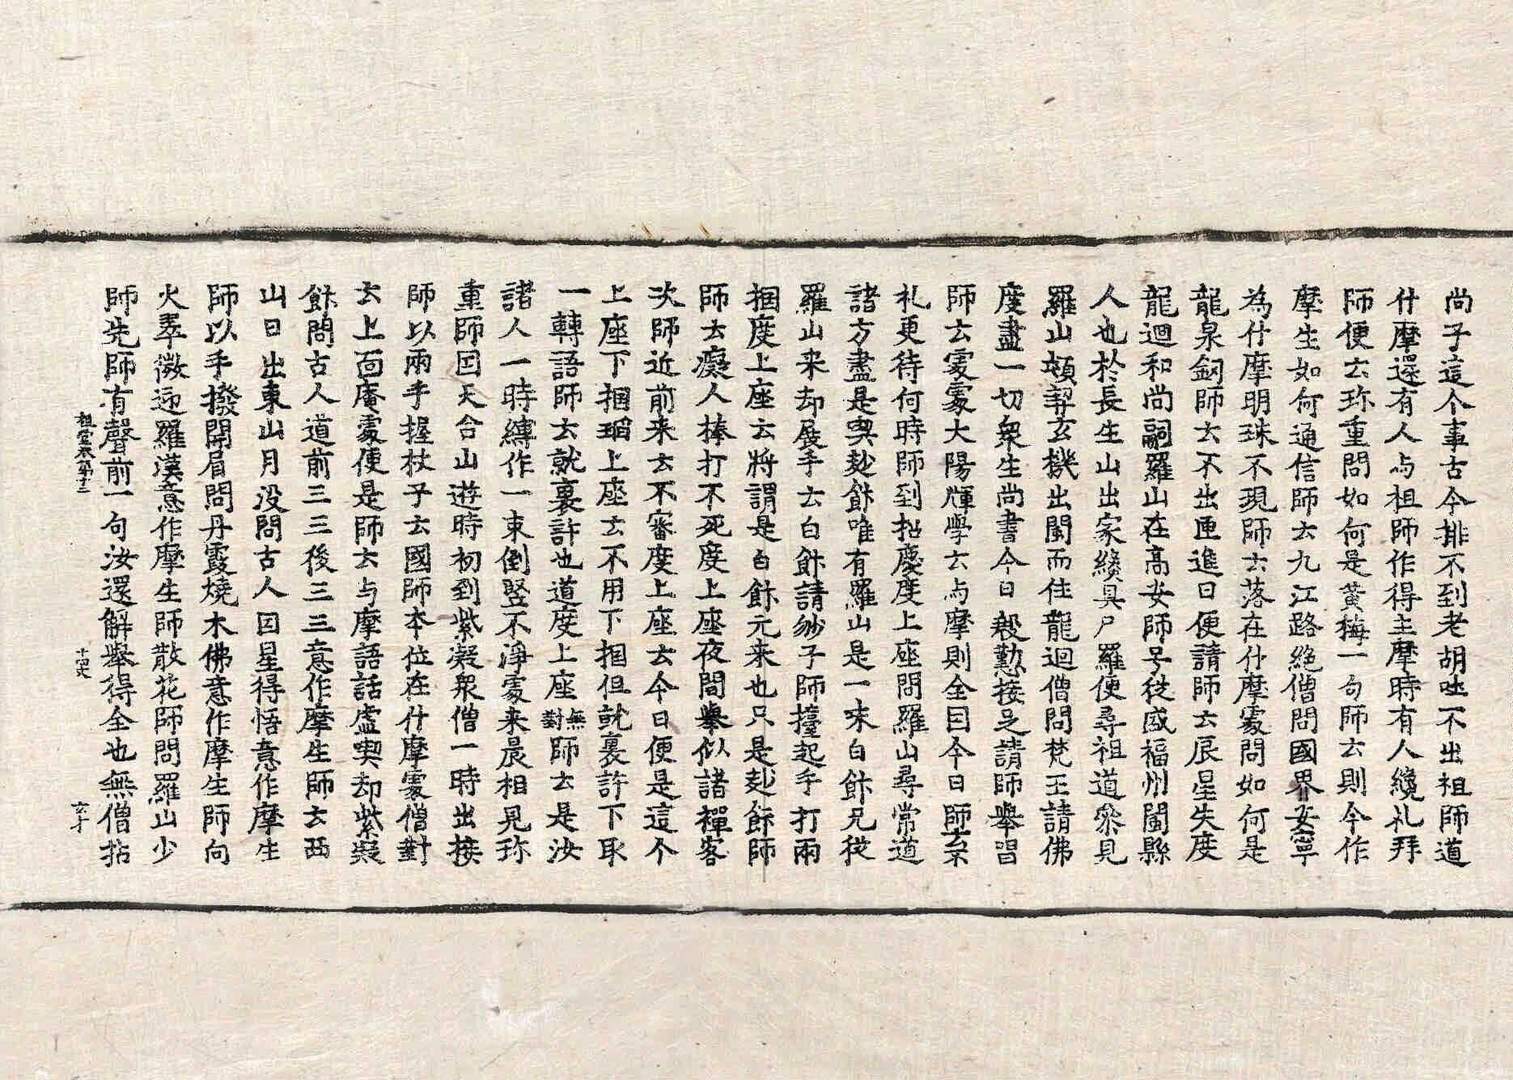 尚子這个事古今排不到老胡吐不出祖師道
什摩還有人与祖師作得主摩時有人纔礼拜
師便云珎重問如何是黃梅一句師云則今作
摩生如何通信師云九江路絶僧問國界安寧
為什摩明珠不現師云落在什摩䖏問如何是
龍泉釰師云不出匣進曰便請師云辰星失度
龍迴和尚嗣羅山在高安師号從盛福州閩縣
人也於長生山出家纔具尸羅便尋祖道叅見
羅山頓契玄機出閩而住龍迴僧問梵王請佛
度盡一切衆生尚書今日殷懃接足請師舉唱
師云䖏䖏大陽輝學云与摩則全因今日師云不
礼更待何時師到招慶度上座問羅山尋常道
諸方盡是喫麨餅唯有羅山是一味白餅兄從
羅山来却展手云白餅請些子師擡起手打兩
掴度上座云將謂是白餅元来也只是麨餅師
師云癡人棒打不死度上座夜間舉似諸禪客
次師近前来云不審度上座云今日便是這个
上座下掴瑫上座云不用下掴但就裏許下取
一轉語師云就裏許也道度上座無對師云是汝
諸人一時縛作一束倒竪不淨䖏来晨相見珎
重師因天台山遊時初到紫凝衆僧一時出接
師以兩手握杖子云國師本位在什摩䖏僧對
云上面庵䖏便是師云与摩語話虛喫却紫凝
餅問古人道前三三後三三意作摩生師云西
山日出東山月没問古人因星得悟意作摩生
師以手撥開眉問丹霞燒木佛意作摩生師向
火翠微迎羅漢意作摩生師散花師問羅山少
師先師有聲前一句汝還解舉得全也無僧拈
祖堂集第十二 十四丈 玄才